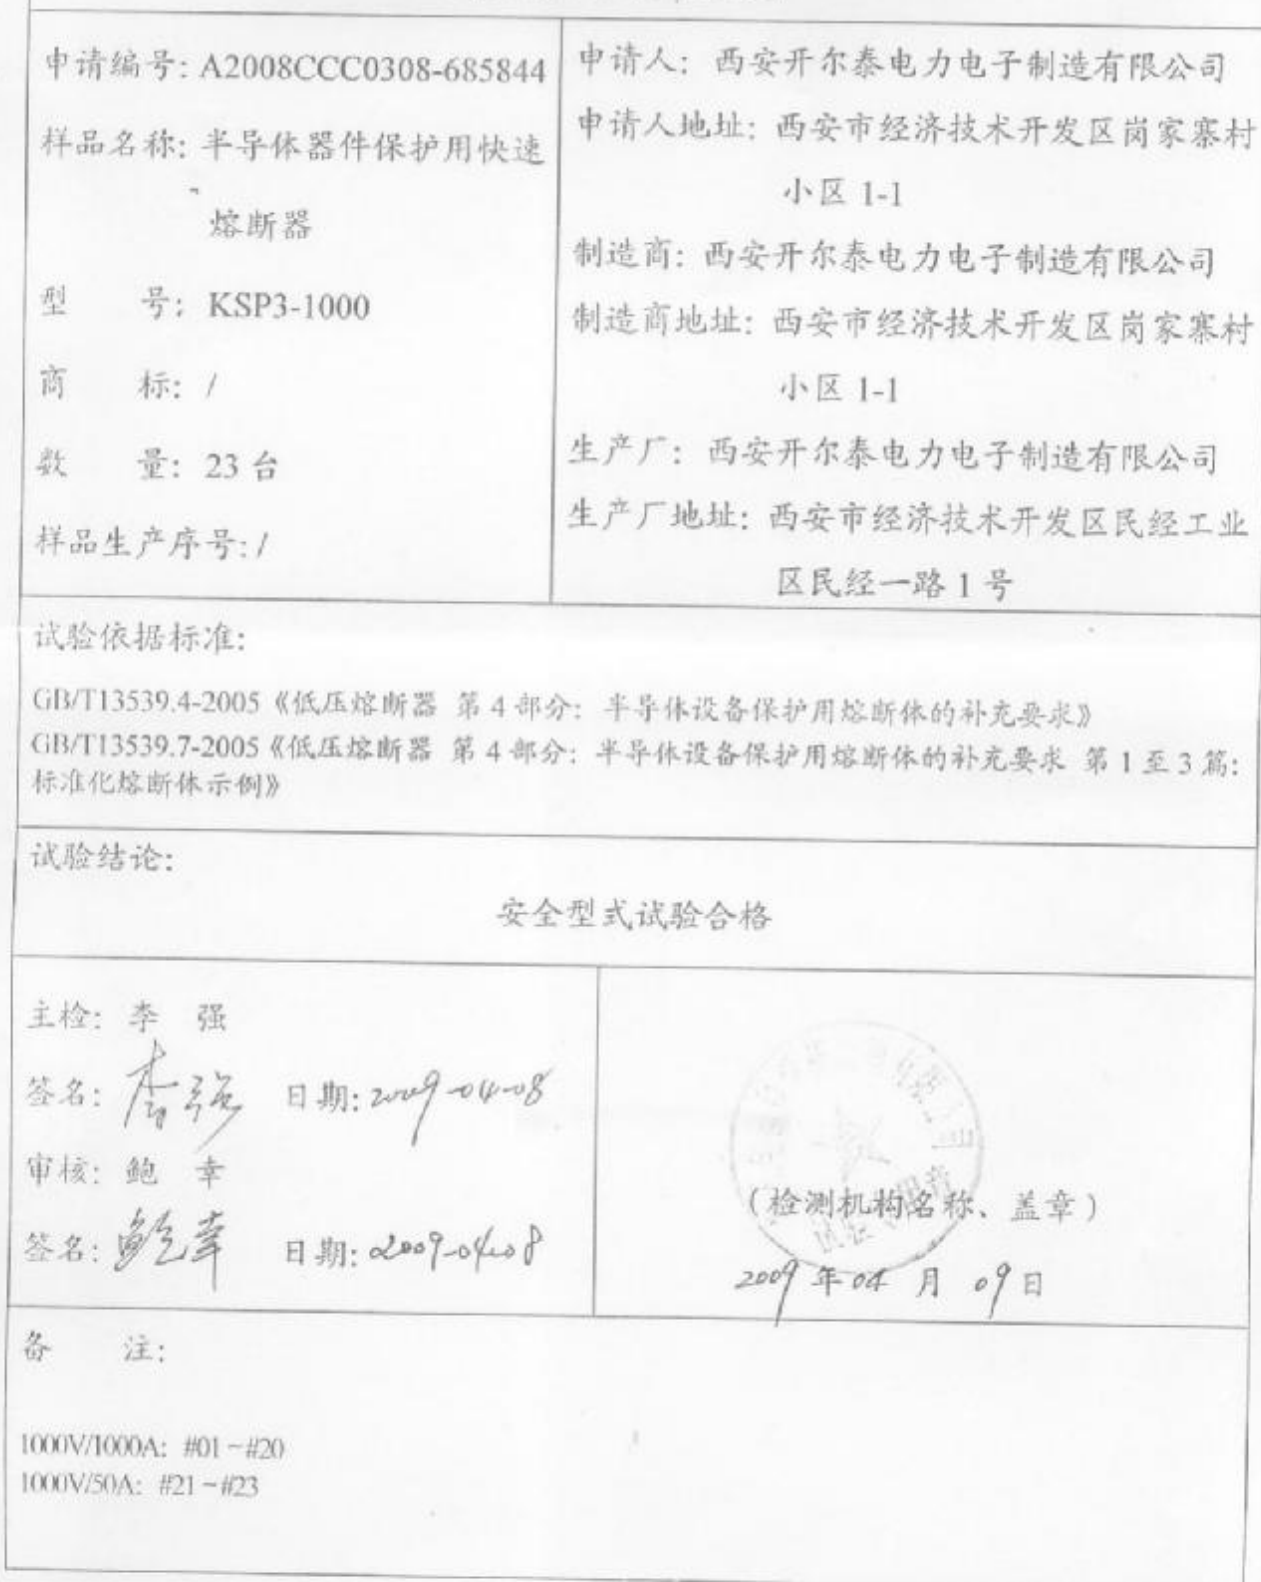 申请编号: A2008CCC0308-685844
样品名称: 半导体器件保护用快速
熔断器
型 号: KSP3-1000
商 标: /
数 量: 23 台
样品生产序号: /
申请人: 西安开尔泰电力电子制造有限公司
申请人地址: 西安市经济技术开发区岗家寨村
小区 1-1
制造商: 西安开尔泰电力电子制造有限公司
制造商地址: 西安市经济技术开发区岗家寨村
小区 1-1
生产厂: 西安开尔泰电力电子制造有限公司
生产厂地址: 西安市经济技术开发区民经工业
区民经一路 1 号
试验依据标准:
GB/T13539.4-2005《低压熔断器 第 4 部分: 半导体设备保护用熔断体的补充要求》
GB/T13539.7-2005《低压熔断器 第 4 部分: 半导体设备保护用熔断体的补充要求 第 1 至 3 篇:
标准化熔断体示例》
试验结论:
安全型式试验合格
主检: 李 强
签名: 李强 日期: 2009-04-08
审核: 鲍 幸
签名: 鲍幸 日期: 2009-04-08
(检测机构名称、盖章)
2009 年 04 月 09 日
备 注:
1000V/1000A: #01~#20
1000V/50A: #21~#23